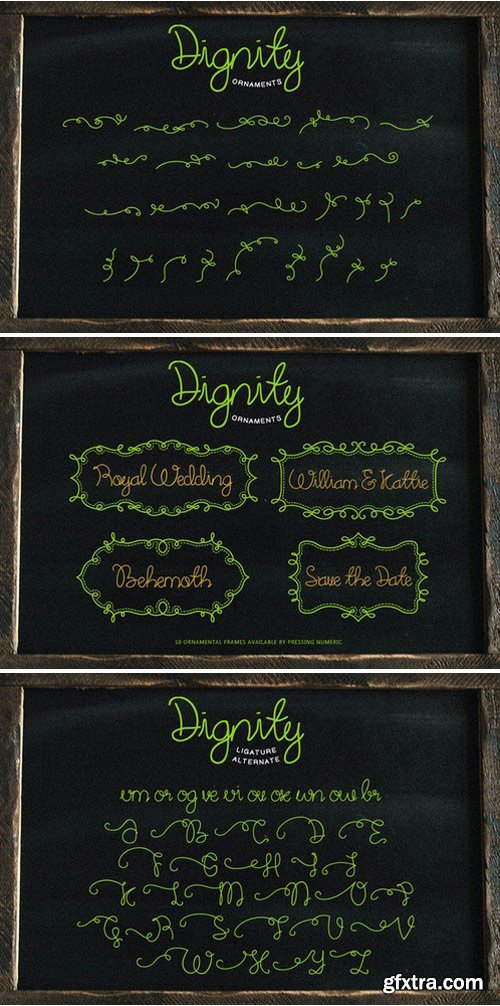 Dignity
ORNAMENTS
Dignity
ORNAMENTS
Royal Wedding
William & Kattie
Behemoth
Save the Date
10 ORNAMENTAL FRAMES AVAILABLE BY PRESSING NUMERIC
Dignity
LIGATURE
ALTERNATE
A B C D E
F G H I J
K L M N O P
Q R S T U V
W X Y Z
gfxtra.com